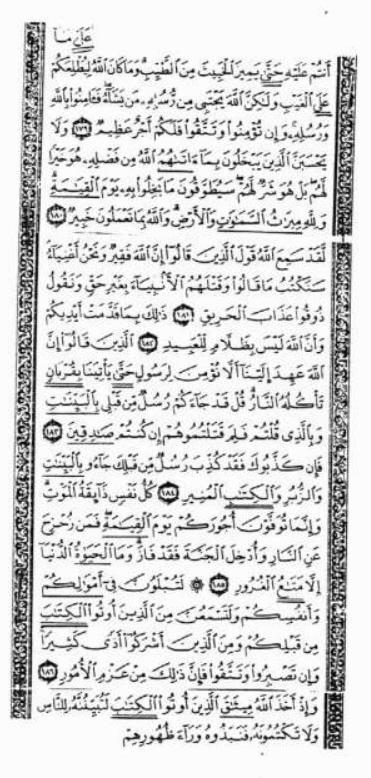 عَلَىٰ مَآ
أَنتُمْ عَلَيْهِ حَتَّىٰ يَمِيزَ ٱلْخَبِيثَ مِنَ ٱلطَّيِّبِ وَمَا كَانَ ٱللَّهُ لِيُطْلِعَكُمْ
عَلَى ٱلْغَيْبِ وَلَٰكِنَّ ٱللَّهَ يَجْتَبِى مِن رُّسُلِهِۦ مَن يَشَآءُ فَـَٔامِنُوا۟ بِٱللَّهِ
وَرُسُلِهِۦ وَإِن تُؤْمِنُوا۟ وَتَتَّقُوا۟ فَلَكُمْ أَجْرٌ عَظِيمٌ ١٧٩ وَلَا
يَحْسَبَنَّ ٱلَّذِينَ يَبْخَلُونَ بِمَآ ءَاتَىٰهُمُ ٱللَّهُ مِن فَضْلِهِۦ هُوَ خَيْرًا
لَّهُم بَلْ هُوَ شَرٌّ لَّهُمْ سَيُطَوَّقُونَ مَا بَخِلُوا۟ بِهِۦ يَوْمَ ٱلْقِيَٰمَةِ
وَلِلَّهِ مِيرَٰثُ ٱلسَّمَٰوَٰتِ وَٱلْأَرْضِ وَٱللَّهُ بِمَا تَعْمَلُونَ خَبِيرٌ ١٨٠
لَّقَدْ سَمِعَ ٱللَّهُ قَوْلَ ٱلَّذِينَ قَالُوٓا۟ إِنَّ ٱللَّهَ فَقِيرٌ وَنَحْنُ أَغْنِيَآءُ
سَنَكْتُبُ مَا قَالُوا۟ وَقَتْلَهُمُ ٱلْأَنۢبِيَآءَ بِغَيْرِ حَقٍّ وَنَقُولُ
ذُوقُوا۟ عَذَابَ ٱلْحَرِيقِ ١٨١ ذَٰلِكَ بِمَا قَدَّمَتْ أَيْدِيكُمْ
وَأَنَّ ٱللَّهَ لَيْسَ بِظَلَّامٍ لِّلْعَبِيدِ ١٨٢ ٱلَّذِينَ قَالُوٓا۟ إِنَّ
ٱللَّهَ عَهِدَ إِلَيْنَآ أَلَّا نُؤْمِنَ لِرَسُولٍ حَتَّىٰ يَأْتِيَنَا بِقُرْبَانٍ
تَأْكُلُهُ ٱلنَّارُ قُلْ قَدْ جَآءَكُمْ رُسُلٌ مِّن قَبْلِى بِٱلْبَيِّنَٰتِ
وَبِٱلَّذِى قُلْتُمْ فَلِمَ قَتَلْتُمُوهُمْ إِن كُنتُمْ صَٰدِقِينَ ١٨٣
فَإِن كَذَّبُوكَ فَقَدْ كُذِّبَ رُسُلٌ مِّن قَبْلِكَ جَآءُو بِٱلْبَيِّنَٰتِ
وَٱلزُّبُرِ وَٱلْكِتَٰبِ ٱلْمُنِيرِ ١٨٤ كُلُّ نَفْسٍ ذَآئِقَةُ ٱلْمَوْتِ
وَإِنَّمَا تُوَفَّوْنَ أُجُورَكُمْ يَوْمَ ٱلْقِيَٰمَةِ فَمَن زُحْزِحَ
عَنِ ٱلنَّارِ وَأُدْخِلَ ٱلْجَنَّةَ فَقَدْ فَازَ وَمَا ٱلْحَيَوٰةُ ٱلدُّنْيَآ
إِلَّا مَتَٰعُ ٱلْغُرُورِ ١٨٥ ۞ لَتُبْلَوُنَّ فِىٓ أَمْوَٰلِكُمْ
وَأَنفُسِكُمْ وَلَتَسْمَعُنَّ مِنَ ٱلَّذِينَ أُوتُوا۟ ٱلْكِتَٰبَ
مِن قَبْلِكُمْ وَمِنَ ٱلَّذِينَ أَشْرَكُوٓا۟ أَذًى كَثِيرًا
وَإِن تَصْبِرُوا۟ وَتَتَّقُوا۟ فَإِنَّ ذَٰلِكَ مِنْ عَزْمِ ٱلْأُمُورِ ١٨٦
وَإِذْ أَخَذَ ٱللَّهُ مِيثَٰقَ ٱلَّذِينَ أُوتُوا۟ ٱلْكِتَٰبَ لَتُبَيِّنُنَّهُۥ لِلنَّاسِ
وَلَا تَكْتُمُونَهُۥ فَنَبَذُوهُ وَرَآءَ ظُهُورِهِمْ